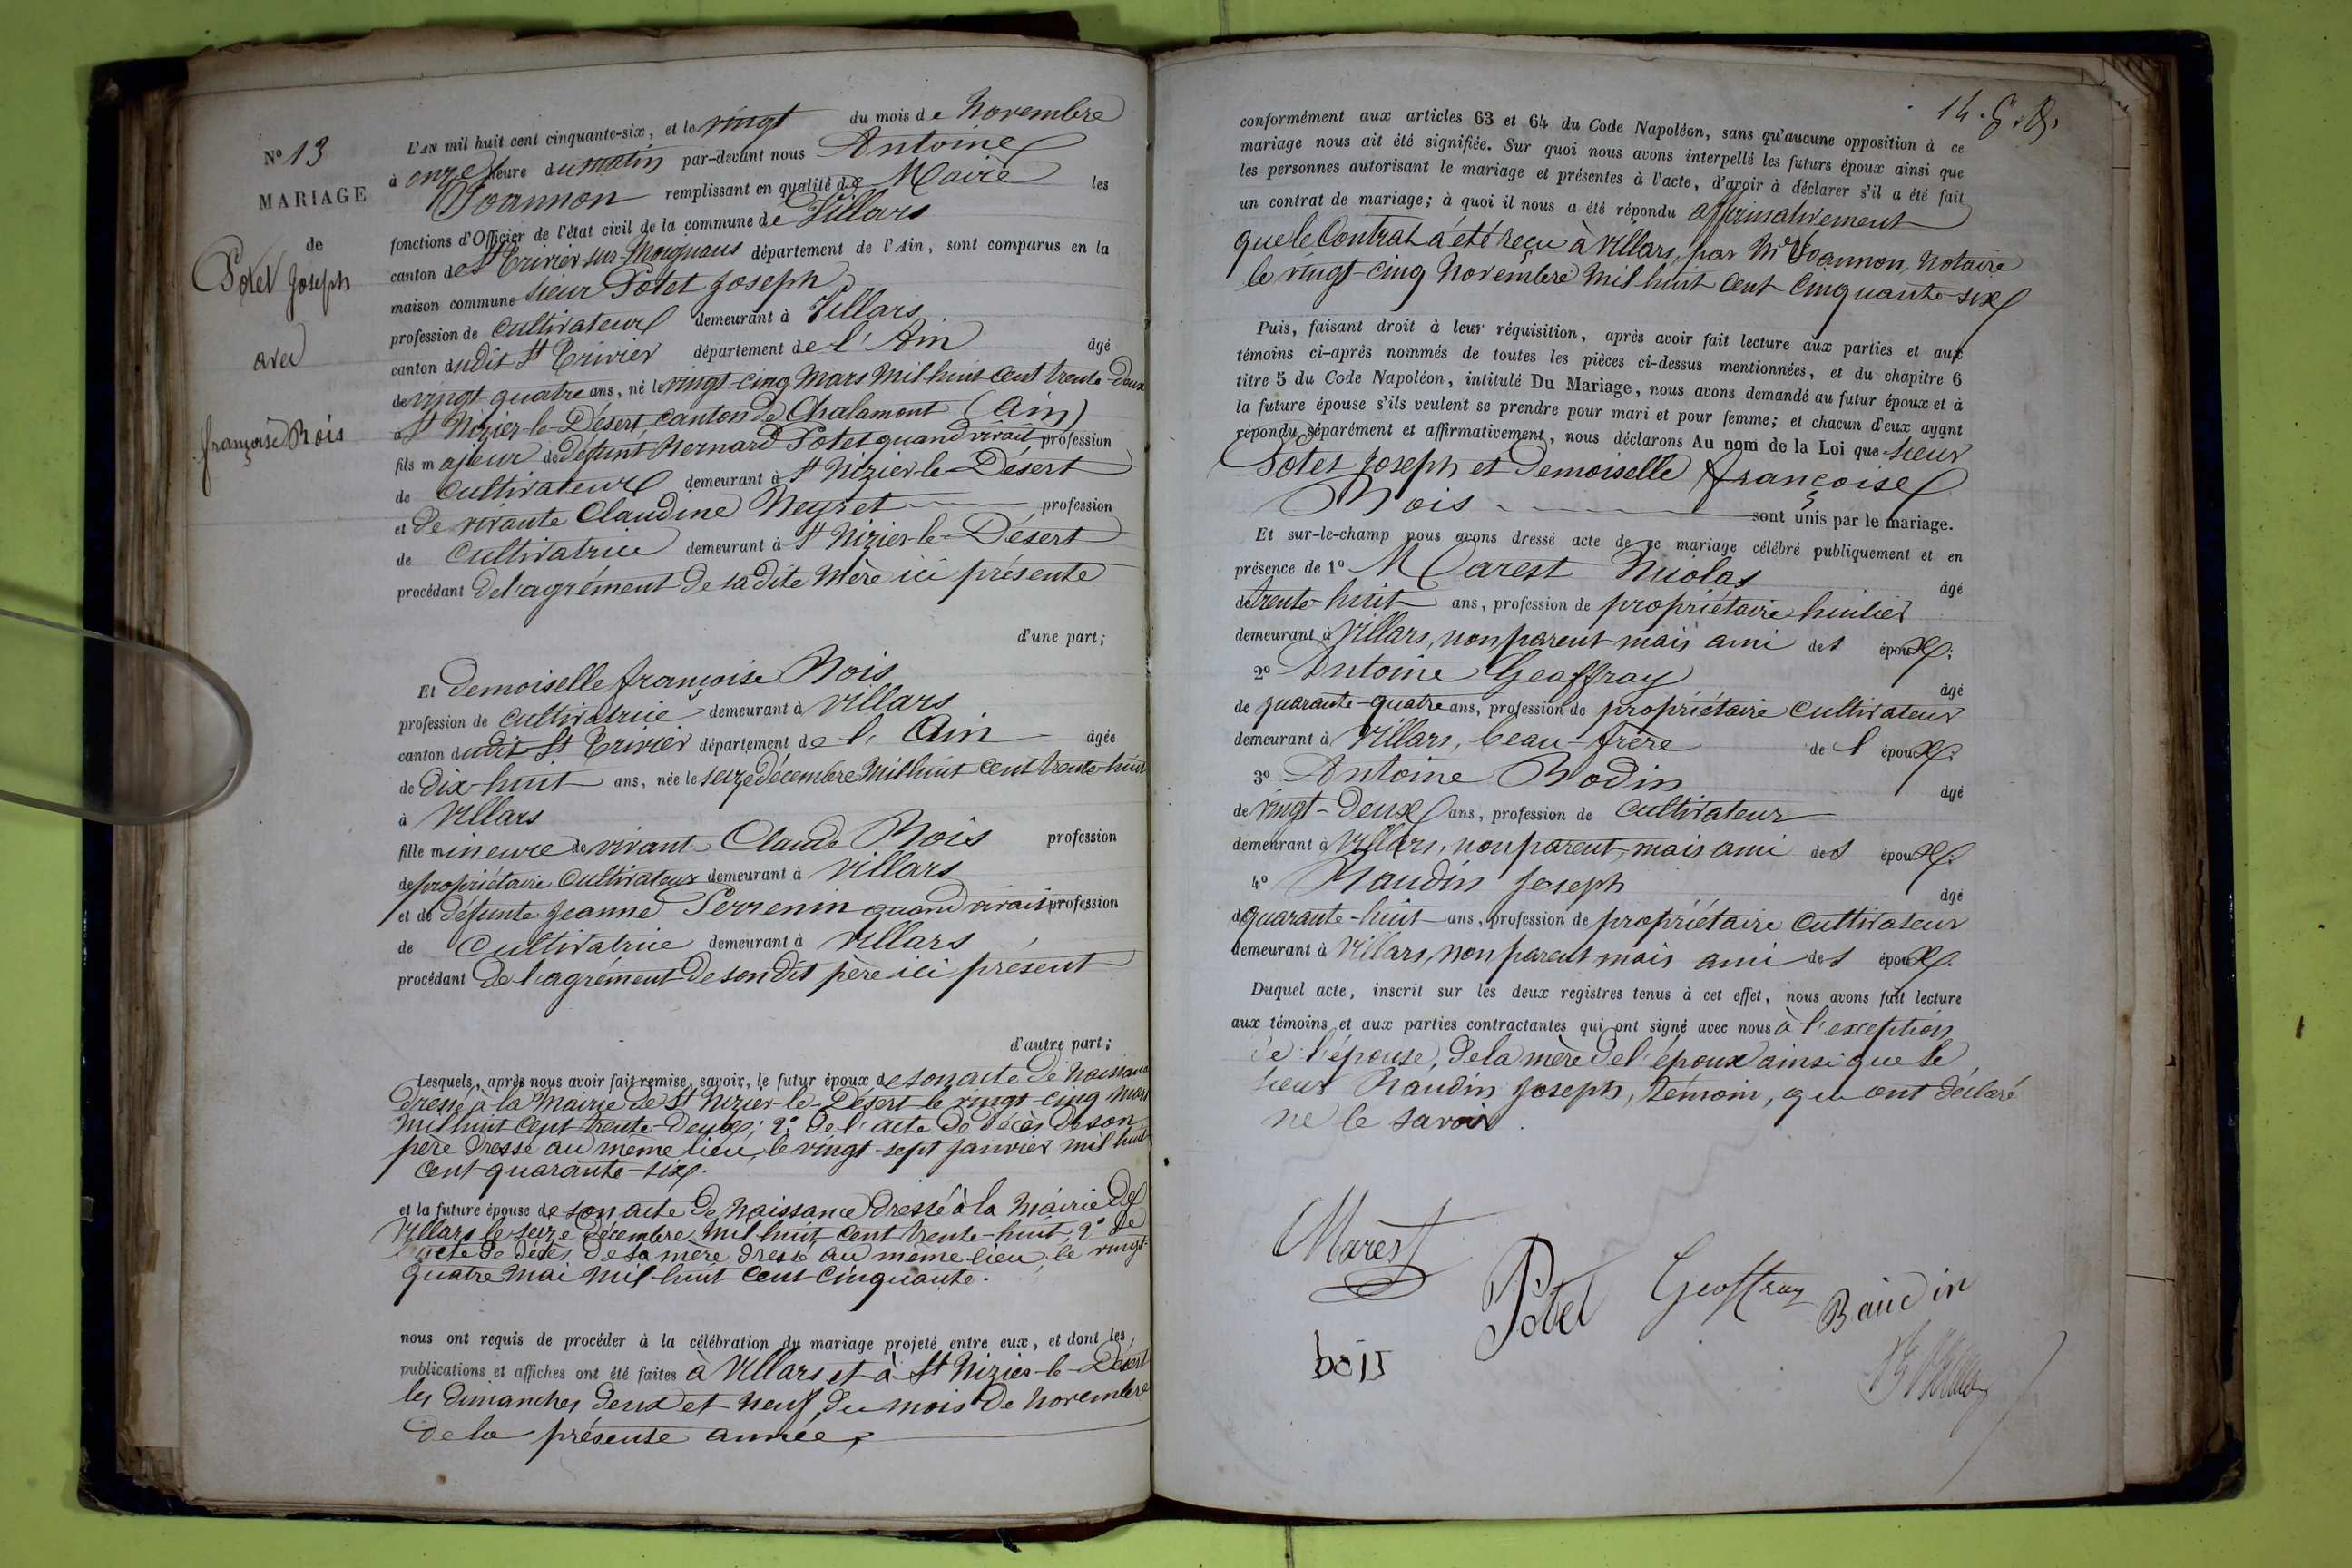 N° 13
MARIAGE
de
Potet Joseph
avec
françoise Bois
L'AN mil huit cent cinquante-six, et le vingt du mois de Novembre
à onze heure du matin par-devant nous Antoine
Joannon remplissant en qualité de Maire les
fonctions d'Officier de l'état civil de la commune de Villars
canton de St Trivier-sur-Moignans département de l'Ain, sont comparus en la
maison commune sieur Potet Joseph
profession de cultivateur demeurant à Villars
canton dudit St Trivier département de l'Ain âgé
de vingt quatre ans, né le vingt-cinq Mars Mil huit cent trente-deux
à St Nizier-le-Désert canton de Chalamont (Ain)
fils majeur de défunt Bernard Potet quand vivait profession
de cultivateur demeurant à St Nizier-le-Désert
et de vivante Claudine Neyret profession
de cultivatrice demeurant à St Nizier-le-Désert
procédant de l'agrément de sadite Mère ici présente
d'une part;
Et demoiselle françoise Bois
profession de cultivatrice demeurant à Villars
canton dudit St Trivier département de l'Ain âgée
de Dix-huit ans, née le seize décembre Mil huit cent trente-huit
à Villars
fille mineure de vivant Claude Bois profession
de propriétaire cultivateur demeurant à Villars
et de défunte Jeanne Perrenin quand vivait profession
de cultivatrice demeurant à Villars
procédant de l'agrément de son dit père ici présent
d'autre part;
Lesquels, après nous avoir fait remise, savoir, le futur époux de son acte de Naissance
dressé à la Mairie de St Nizier-le-Désert le vingt-cinq Mars
Mil huit cent trente-deux; 2° de l'acte de décès de son
père dressé au même lieu, le vingt-sept Janvier mil huit
cent quarante-six.
et la future épouse de son acte de Naissance dressé à la Mairie de
Villars le seize décembre Mil huit cent trente-huit, 2° de
l'acte de décès de sa mère dressé au même lieu, le vingt-
quatre Mai Mil huit cent cinquante.
nous ont requis de procéder à la célébration du mariage projeté entre eux, et dont les
publications et affiches ont été faites à Villars et à St Nizier-le-Désert
les dimanches deux et neuf, du mois de Novembre
de la présente année,
14.
conformément aux articles 63 et 64 du Code Napoléon, sans qu'aucune opposition à ce
mariage nous ait été signifiée. Sur quoi nous avons interpellé les futurs époux ainsi que
les personnes autorisant le mariage et présentes à l'acte, d'avoir à déclarer s'il a été fait
un contrat de mariage; à quoi il nous a été répondu affirmativement
que le Contrat a été reçu à Villars, par Me Joannon, Notaire
le vingt-cinq Novembre Mil huit cent cinquante-six
Puis, faisant droit à leur réquisition, après avoir fait lecture aux parties et aux
témoins ci-après nommés de toutes les pièces ci-dessus mentionnées, et du chapitre 6
titre 5 du Code Napoléon, intitulé Du Mariage, nous avons demandé au futur époux et à
la future épouse s'ils veulent se prendre pour mari et pour femme; et chacun d'eux ayant
répondu séparément et affirmativement, nous déclarons Au nom de la Loi que sieur
Potet Joseph et Demoiselle françoise
Bois sont unis par le mariage.
Et sur-le-champ nous avons dressé acte de ce mariage célébré publiquement et en
présence de 1° Marest Nicolas âgé
de trente-huit ans, profession de propriétaire huilier
demeurant à Villars, non parent mais ami des époux;
2° Antoine Geoffray âgé
de quarante-quatre ans, profession de propriétaire cultivateur
demeurant à Villars, beau-frère de l'époux;
3° Antoine Bodin âgé
de vingt-deux ans, profession de cultivateur
demeurant à Villars, non parent, mais ami des époux;
4° Baudin Joseph âgé
de quarante-huit ans, profession de propriétaire cultivateur
demeurant à Villars, non parent mais ami des époux.
Duquel acte, inscrit sur les deux registres tenus à cet effet, nous avons fait lecture
aux témoins et aux parties contractantes qui ont signé avec nous à l'exception
de l'épouse, de la mère de l'époux ainsi que le
sieur Baudin Joseph, témoin, qui ont déclaré
ne le savoir.
Marest
Potet Geoffray Baudin
bois